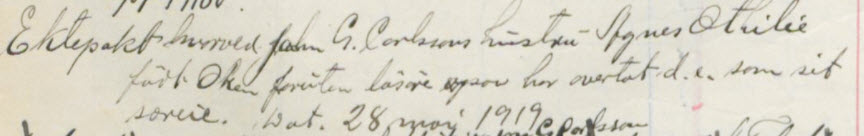 Ektepakt hvorved John G. Carlssons hustru Agnes Othilie
født Oken foruten løsøre ogsaa har overtat d.e. som sit
særeie. Dat. 28 maj 1919
G Carlsson